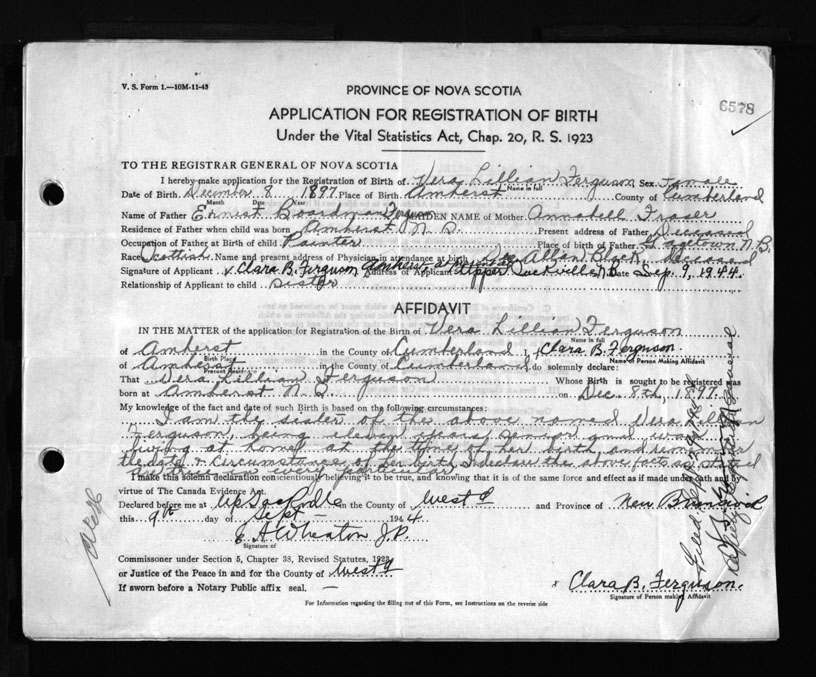 V. S. Form 1.—10M-11-43
PROVINCE OF NOVA SCOTIA
6578
APPLICATION FOR REGISTRATION OF BIRTH
Under the Vital Statistics Act, Chap. 20, R. S. 1923
TO THE REGISTRAR GENERAL OF NOVA SCOTIA
I hereby make application for the Registration of Birth of Vera Lillian Ferguson Sex Female
Name in full
Date of Birth December 8 1897 Place of Birth Amherst County of Cumberland
Month Date Year
Name of Father Ernist Boardman Ferguson MAIDEN NAME of Mother Annabell Fraser
Residence of Father when child was born Amherst N. S. Present address of Father Deceased
Occupation of Father at Birth of child Painter Place of birth of Father Gagetown N. B.
Race Scottish Name and present address of Physician in attendance at birth Dr. Allan Black, Deceased
Signature of Applicant x Clara B. Ferguson Address of Applicant Upper Sackville N.B Date Sep. 9, 1944.
Relationship of Applicant to child sister
AFFIDAVIT
IN THE MATTER of the application for Registration of the Birth of Vera Lillian Ferguson
Name in full
of Amherst in the County of Cumberland, I, Clara B. Ferguson
Birth Place Name of Person Making Affidavit
of Amherst in the County of Cumberland do solemnly declare:
That Vera Lillian Ferguson Whose Birth is sought to be registered was
born at Amherst N. S. on Dec. 8th, 1897.
My knowledge of the fact and date of such Birth is based on the following circumstances:
I am the sister of the above named Vera Lillian
Ferguson, being eleven years senior and was
living at home at the time of her birth, and remember
the date & circumstances of her birth. I declare the above facts as stated
in every particular.
I make this solemn declaration conscientiously believing it to be true, and knowing that it is of the same force and effect as if made under oath and by
virtue of The Canada Evidence Act.
Declared before me at Up Sackville in the County of West'd and Province of New Brunswick
this 9th day of Sept — 1944
E A Wheaton J.P.
Signature of
Commissioner under Section 5, Chapter 38, Revised Statutes, 1923
or Justice of the Peace in and for the County of West'd
If sworn before a Notary Public affix seal. —
x Clara B. Ferguson.
Signature of Person making Affidavit
For Information regarding the filling out of this Form, see Instructions on the reverse side